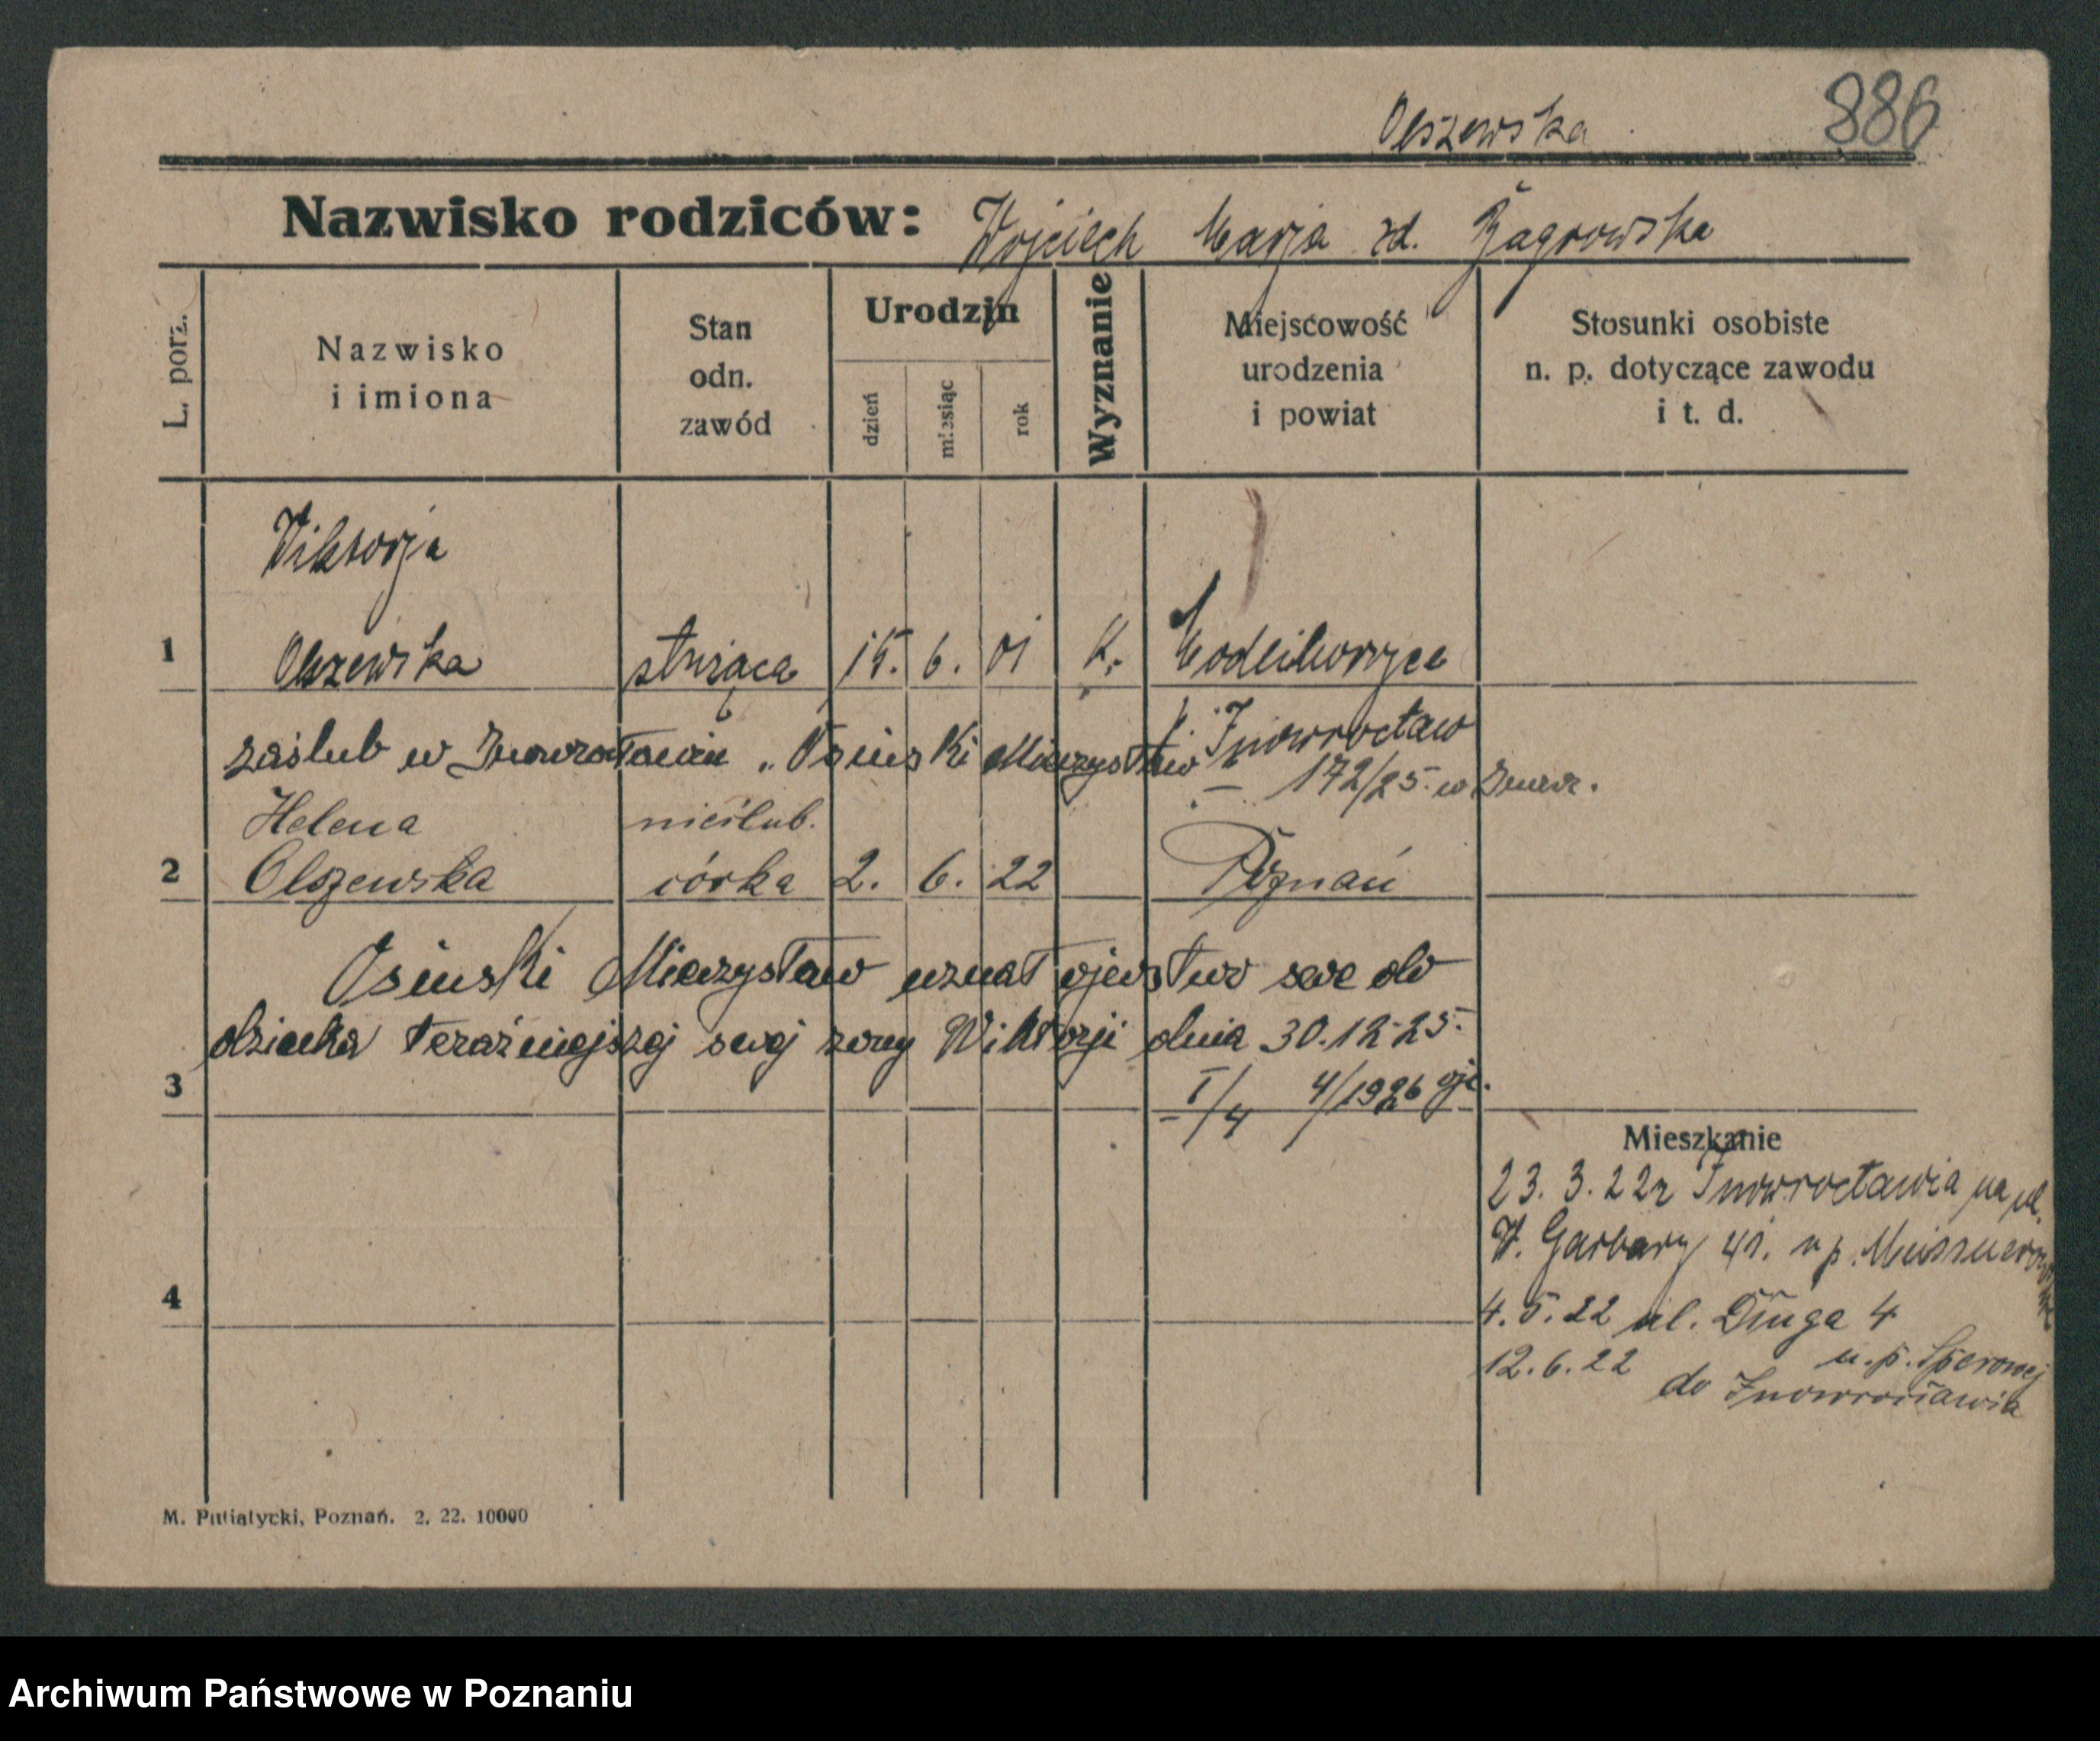 Olszewska 886
Nazwisko rodziców: Wojciech Marja zd. Żagrowska
L. porz.
Nazwisko
i imiona
Stan
odn.
zawód
Urodzin
dzień
miesiąc
rok
Wyznanie
Miejscowość
urodzenia
i powiat
Stosunki osobiste
n. p. dotyczące zawodu
i t. d.
Wiktorja
1 Olszewska służąca 15. 6. 01 K. Modliborzyce
p. Inowrocław
zaślub w Inowrocławiu „Osiński Mieczysław
– 172/25 w Inowr.
Helena nieślub.
2 Olszewska córka 2. 6. 22 Poznań
Osinski Mieczysław uznał ojcostwo swe do
dziecka teraźniejszej swej żony Wiktorji dnia 30.12.25.
3 – I/4 4/1926
Mieszkanie
23. 3. 22 z Inowrocławia na ul.
W. Garbary 41. u p.
4. 5. 22 ul. Długa 4
u. p.
12. 6. 22 do Inowrocławia
4
M. Putiatycki, Poznań. 2. 22. 10000
Archiwum Państwowe w Poznaniu